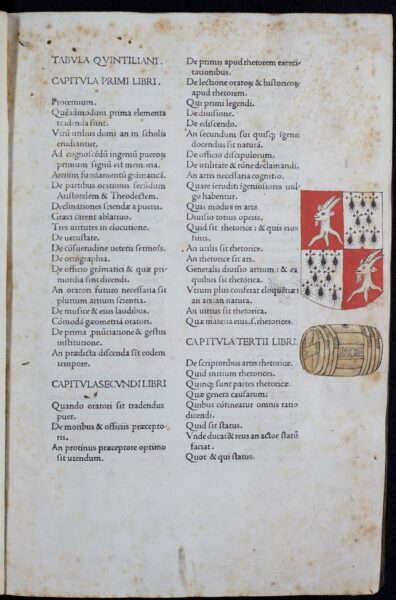 TABVLA QVINTILIANI.
CAPITVLA PRIMI LIBRI.
Prooemium.
Quéadmodum prima elementa
tradenda sunt.
Vtrū utilius domi an in scholis
erudiantur.
Ad cognoscēdū ingeniū pueroɽ
primum signū eit memoria.
Artium fundamentū grāmaticā.
De partibus orationis secūdum
Aristotelem & Theodectem.
Declinationes sciendæ a pueris.
Græci carent ablatiuo.
Tres uirtutes in elocutione.
De uetustate.
De cōsuetudine ueteris sermōis.
De ortographia.
De officio grāmatici & quæ pri-
mordia sint dicendi.
An oratori futuro necessaria sit
plurium artium scientia.
De musice & eius laudibus.
Cōmoda geometria oratori.
De prima pnūciatione & gestus
institutione.
An prædicta discenda sit eodem
tempore.
CAPITVLA SECVNDI LIBRI
Quando oratori sit tradendus
puer.
De moribus & officiis præcepto-
ris.
An protinus præceptore optimo
sit utendum.
De primis apud rhetorem exerci-
tationibus.
De lectione oratoɽ & historicoɽ
apud rhetorem.
Qui primi legendi.
De diuisione.
De ediscendo.
An secundum sui quisq; īgenii
docendus sit naturā.
De officio discipulorum.
De utilitate & rōne declamandi.
An artis necessaria cognitio.
Quare īeruditi īgeniosiores uul-
go habentur.
Quis modus in arte
Diuisio totius operis.
Quid sit rhetorice: & quis eius
finis.
An utilis sit rhetorice.
An rhetorice sit ars.
Generalis diuisio artium: & ex
quibus sit rhetorica.
Vtrum plus conferat eloquētiæ
an ars: an natura.
An uirtus sit rhetorica.
Quæ materia eius. f. rhetorices.
CAPITVLA TERTII LIBRI.
De scriptoribus artis rhetoricæ.
Quid initium rhetorices.
Quinq; sunt partes rhetoricæ.
Quæ genera causarum:
Quibus cōtineatur omnis ratio
dicendi.
Quid sit status.
Vnde ducat̃ & reus an actor statū
faciat.
Quot & qui status.